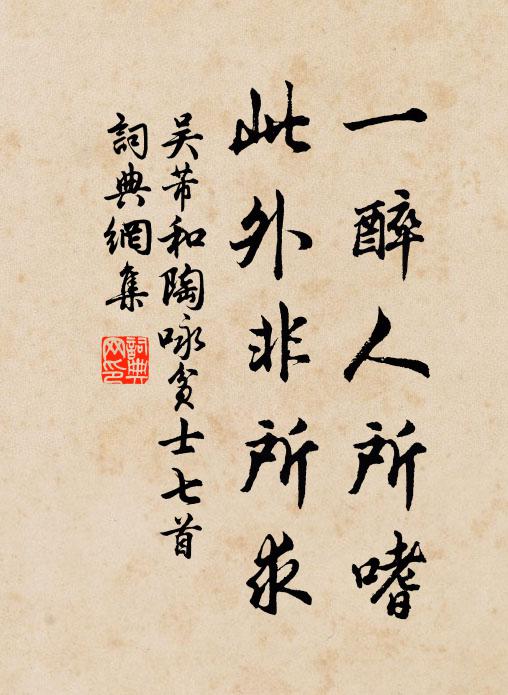 一醉人所嗜
此外非所求
吴芾和陶咏貧士七首
詞典網集
詞典網印